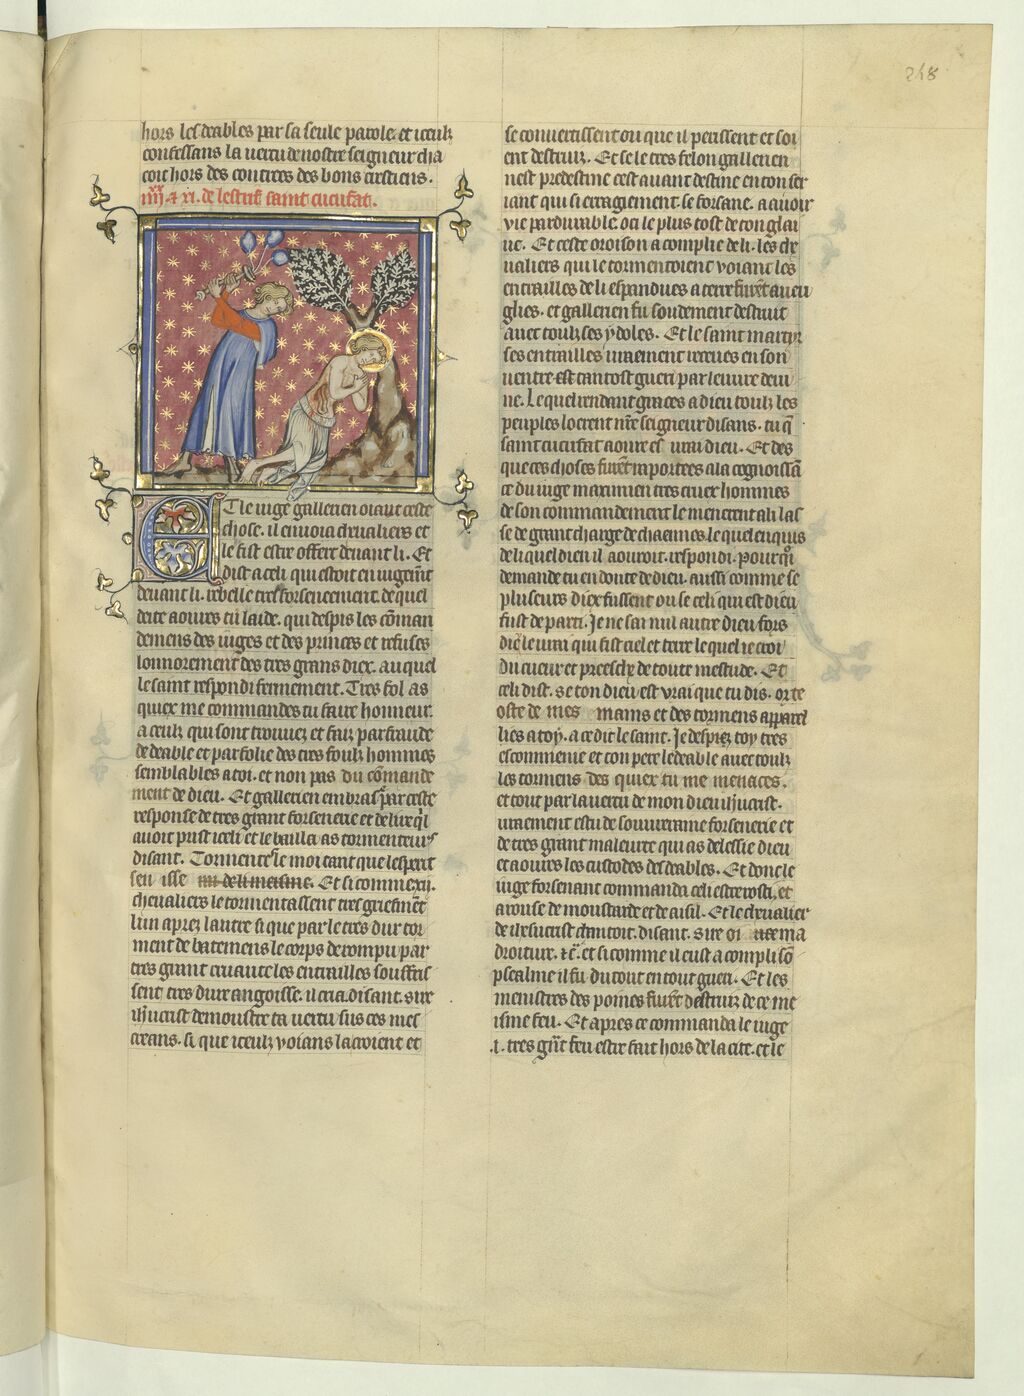 248
hors les deables par sa seule parole. et iceulz
confessans la vertu de nostre seigneur cha
coit hors des contrees des bons crestiens.
iiij xx & xi. de lestrif saint cucufat.
Et le iuge gallerien oiant ceste
chose. il enuoia cheualiers et
le fist estre offert deuant li. Et
dist a celi qui estoit en iugemt
deuant li. rebelle tresforsenement. de quel
deite aoures tu laide. qui despis les cōman
demens des iuges et des princes et refuses
lonnorement des tres grans diex. auquel
le saint respondi fermement. Tres fol as
quiex me commandes tu faire honneur.
a ceulz qui sont trouuez et faiz par fraude
de deable et par folie des tres foulz hommes
semblables a toi. et non pas du cōmande
ment de dieu. Et gallerien embrase par ceste
response de tres grant forsenerie et de lire qil
auoit prist iceli et le bailla as tormenteurs
disant. Tormentes le moi tant que lesperit
sen isse de li meisme. Et si comme xij.
cheualiers le tormentassent tres griefmēt
lun aprez lautre si que par le tres dur tor
ment de batemens le corps derompu par
tres grant cruaute les entrailles souffris
sent tres dure angoisse. il cria. disant. sire
ihūcrist demoustre ta vertu sus ces mes
creans. si que iceulz voians la croient et
se conuertissent ou que il perissent et soi
ent destruiz. Et se le tres felon gallerien
nest predestine cest auant destine en ton ser
iant qui si erragiement. se forsane. a auoir
vie pardurable. oci le plus tost de ton glai
ue. Et ceste oroison acomplie de li. les che
ualiers qui le tormentoient voiant les
entrailles de li espandues a terre furēt aueu
gles. et gallerien fu soudement destruit
auec toulz ses ydoles. Et le saint martyr
ses entrailles uraiement receues en son
uentre est tantost gueri par leuure deui
ne. Le quel rendant graces a dieu toulz les
peuples loerent nr̄e seigneur disans. tu q̄
saint cucufat aoure es urai dieu. Et des
que ces choses furēt importees a la cognoissā
ce du iuge maximien tres cruex hommes
de son commandement le menerent a li las
se de grant charge de chaennes. le quel enquis
de li quel dieu il aouroit. respondi. Pourqi
demande tu en doute de dieu. aussi comme se
pluseurs diex fussent ou se celi qui est dieu
fust de parti. Je ne sai nul autre dieu fors
dieu le urai qui fist ciel et terre le quel ie croi
du cueur et preesche de toute mestude. Et
celi dist. se ton dieu est vrai que tu dis. or te
oste de mes mains et des tormens apparel
lies a toy. a ce dit le saint. Je despiez toy tres
escommenie et ton pere le deable auec toulz
les tormens des quiex tu me menaces.
et tout par la uertu de mon dieu ihūcrist.
uraiement es tu de souueraine forsenerie et
de tres grant maleurte qui as delessie dieu
et aoures les custodes des deables. Et donc le
iuge forsenant commanda celi estre rosti. et
arouse de moustarde et de aisil. Et le cheualier
de ihesucrist chantoit. disant. Sire oi ma
droiture. &c̄. et si comme il eust acompli sō
psealme il fu du tout en tout gueri. Et les
menistres des poines furēt destruiz de ce me
isme feu. Et apres ce commanda le iuge
.i. tres grāt feu estre fait hors de la cite. et le